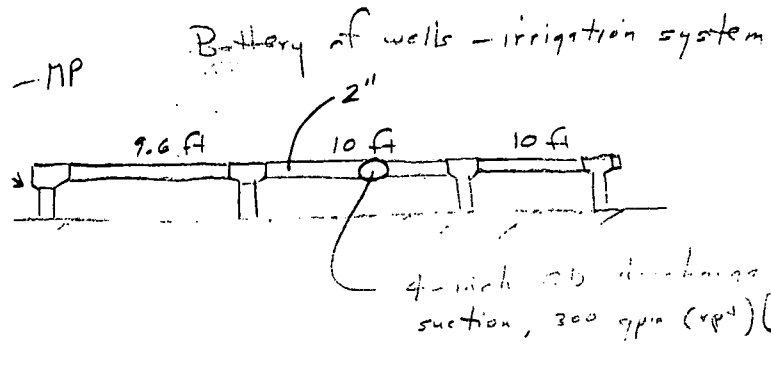 Battery of wells - irrigation system
- MP
2"
9.6 ft 10 ft 10 ft
4-inch OD discharge
suction, 300 gpm (rpt)(